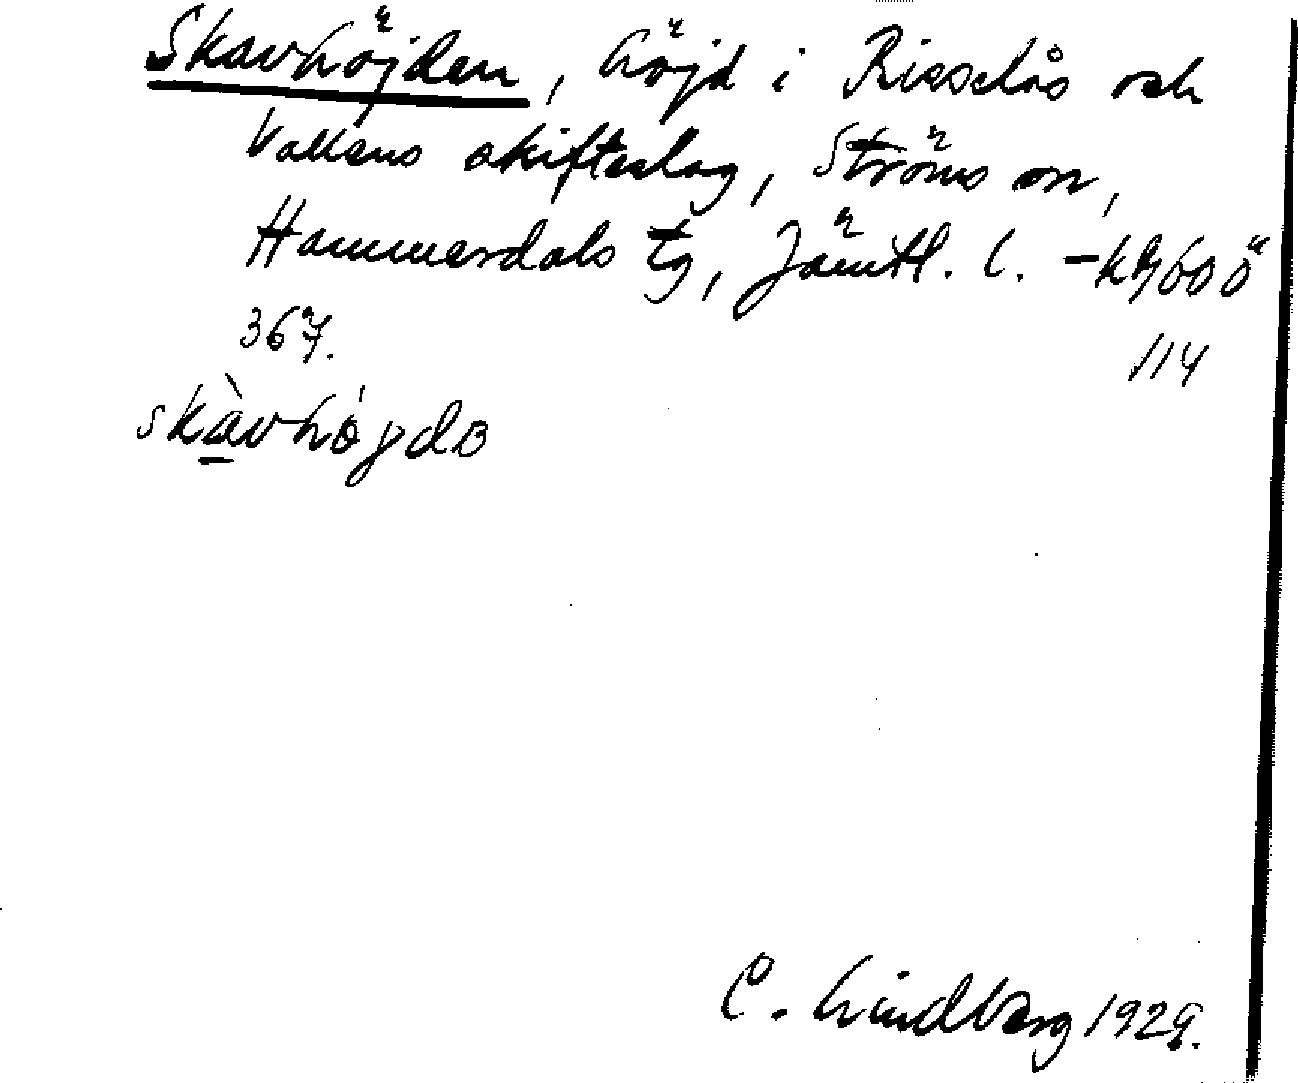 Skavhöjden, höjd i Risselås och
Vallens skifteslag, Ströms sn,
Hammerdals tg, Jämtl. l. – kh 600 ö
367. 114
skàvhöjda
C. Lindberg 1929.